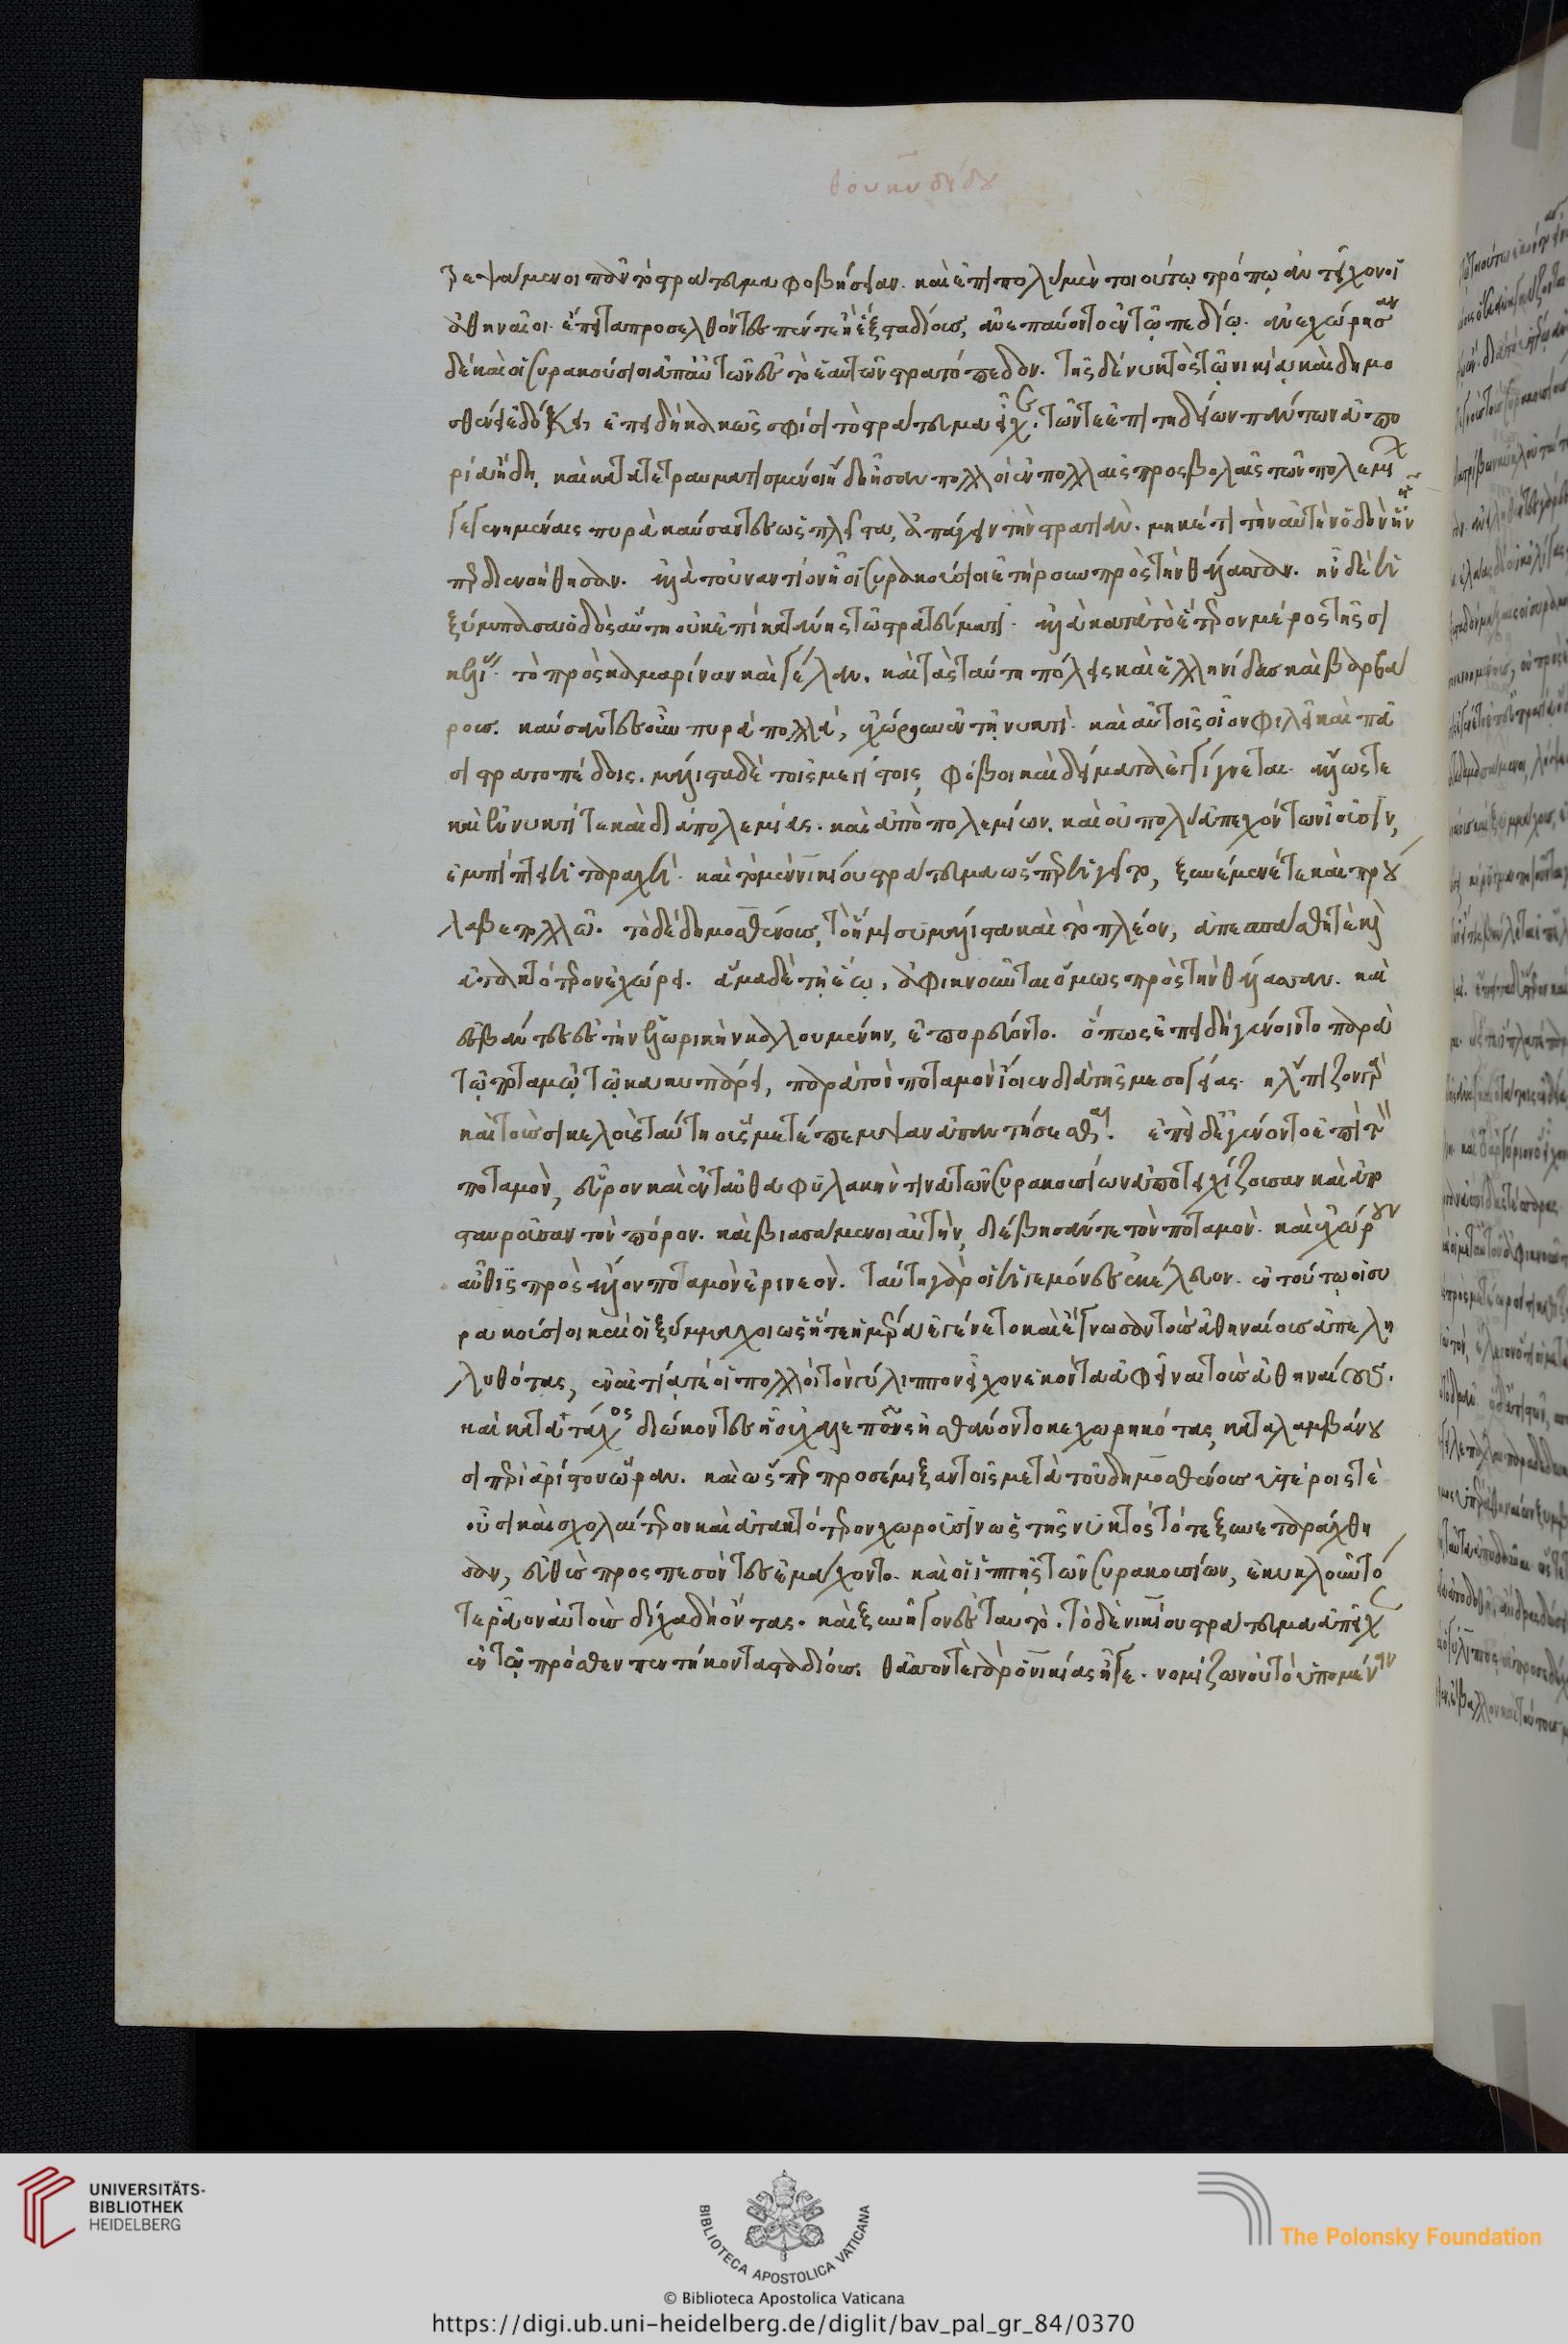 Θουκυδίδου
τρεψάμενοι πᾶν τὸ στράτευμα φοβήσειαν. καὶ ἐπὶ πολὺ μὲν τοιούτῳ τρόπῳ ἀντεῖχον οἱ
ἀθηναῖοι. ἔπειτα προσελθόντες πέντε ἢ ἓξ σταδίους, ἀνεπαύοντο ἐν τῷ πεδίῳ. ἀνεχώρησαν
δὲ καὶ οἱ συρακούσιοι ἀπ' αὐτῶν ἐς τὸ ἑαυτῶν στρατόπεδον. τῆς δὲ νυκτὸς τῷ νικίᾳ καὶ δημο
σθένει ἐδόκει, ἐπειδὴ κακῶς σφίσι τὸ στράτευμα εἶχε. τῶν τε ἐπιτηδείων πάντων ἀπο
ρίᾳ ἤδη, καὶ κατατετραυματισμένοι ἤδη ἦσαν πολλοὶ ἐν πολλαῖς προσβολαῖς τῶν πολεμίων
γεγενημέναις πυρὰ καύσαντες ὡς πλεῖστα, ἀπάγειν τὴν στρατιάν. μηκέτι τὴν αὐτὴν ὁδὸν ἣν
περ διενοήθησαν. ἀλλὰ τοὐναντίον ἢ οἱ συρακούσιοι ἐτήρουν πρὸς τὴν θάλασσαν. ἦν δὲ ἡ
ξύμπασα ὁδὸς αὕτη οὐκ ἐπὶ κατάνης τῷ στρατεύματι. ἀλλὰ κατὰ τὸ ἕτερον μέρος τῆς σι
κελίας τὸ πρὸς καμαρίναν καὶ γέλαν. καὶ τὰς ταύτη πόλεις καὶ ἑλληνίδας καὶ βαρβά
ρους. καύσαντες οὖν πυρὰ πολλὰ, ἐχώρουν ἐν τῇ νυκτί. καὶ αὐτοῖς οἷον φιλεῖ καὶ πᾶ
σι στρατοπέδοις. μάλιστα δὲ τοῖς μεγίστοις, φόβοι καὶ δείματα ἐγγίγνεται. ἄλλως τε
καὶ ἐν νυκτί τε καὶ διὰ πολεμίας. καὶ ἀπὸ πολεμίων. καὶ οὐ πολὺ ἀπεχόντων ἰοῦσιν,
ἐμπίπτει ταραχή. καὶ τὸ μὲν νικίου στράτευμα ὥσπερ ἡγεῖτο, ξυνέμενέ τε καὶ πρού
λαβε πολλῷ. τὸ δὲ δημοσθένους, τὸ ἥμισυ μάλιστα καὶ τὸ πλέον, ἀπεσπάσθη τε καὶ
ἀτακτότερον ἐχώρει. ἅμα δὲ τῇ ἕῳ, ἀφικνοῦνται ὅμως πρὸς τὴν θάλασσαν. καὶ
ἐσβάντες ἐς τὴν ἑλωρικὴν καλουμένην, ἐπορεύοντο. ὅπως ἐπειδὴ γένοιντο παρὰ
τῷ ποταμῷ τῷ κακυπάρει, παρὰ τὸν ποταμὸν ἴοιεν διὰ τῆς μεσογείας. ἤλπιζον γὰρ
καὶ τοὺς σικελοὺς ταύτη οὓς μετέπεμψαν ἀπαντήσεσθαι. ἐπειδὴ ἐγένοντο ἐπὶ τῷ
ποταμὸν, εὗρον καὶ ἐνταῦθα φυλακήν τινα τῶν συρακουσίων ἀποτειχίζουσαν καὶ ἀπο
σταυροῦσαν τὸν πόρον. καὶ βιασάμενοι αὐτὴν, διέβησάν τε τὸν ποταμὸν. καὶ ἐχώρουν
αὖθις πρὸς ἄλλον ποταμὸν ἐρινεόν. ταύτη γὰρ οἱ ἡγεμόνες ἐκέλευον. ἐν τούτῳ οἱ συ
ρακούσιοι καὶ οἱ ξύμμαχοι ὡς ἥ τε ἡμέρα ἐγένετο καὶ ἔγνωσαν τοὺς ἀθηναίους ἀπελη
λυθότας, ἐν αἰτίᾳ τε οἱ πολλοὶ τὸν γύλιππον εἶχον ἑκόντα ἀφεῖναι τοὺς ἀθηναίους.
καὶ κατὰ τάχος διώκοντες ᾗ οὐ χαλεπῶς ᾐσθάνοντο κεχωρηκότας, καταλαμβάνου
σι περὶ ἀρίστου ὥραν. καὶ ὥσπερ προσέμιξαν τοῖς μετὰ τοῦ δημοσθένους ὑστέροις τὲ
οὖσι καὶ σχολαίτερον καὶ ἀτακτότερον χωροῦσιν ὡς τῆς νυκτὸς τότε ξυνεταράχθη
σαν, εὐθὺς προσπεσόντες ἐμάχοντο. καὶ οἱ ἱππῆς τῶν συρακουσίων, ἐκυκλοῦντό
τε ῥᾷον αὐτοὺς δίχα δὴ ὄντας. καὶ ξυνῆγον ἐς ταυτό. τὸ δὲ νικίου στράτευμα ἀπεῖχεν
ἐν τῷ πρόσθεν πεντήκοντα σταδίους. θᾶσσόν τε γὰρ ὁ νικίας ἦγε. νομίζων οὐ τὸ ὑπομένειν
UNIVERSITÄTS-
BIBLIOTHEK
HEIDELBERG
BIBLIOTECA APOSTOLICA VATICANA
© Biblioteca Apostolica Vaticana
The Polonsky Foundation
https://digi.ub.uni-heidelberg.de/diglit/bav_pal_gr_84/0370